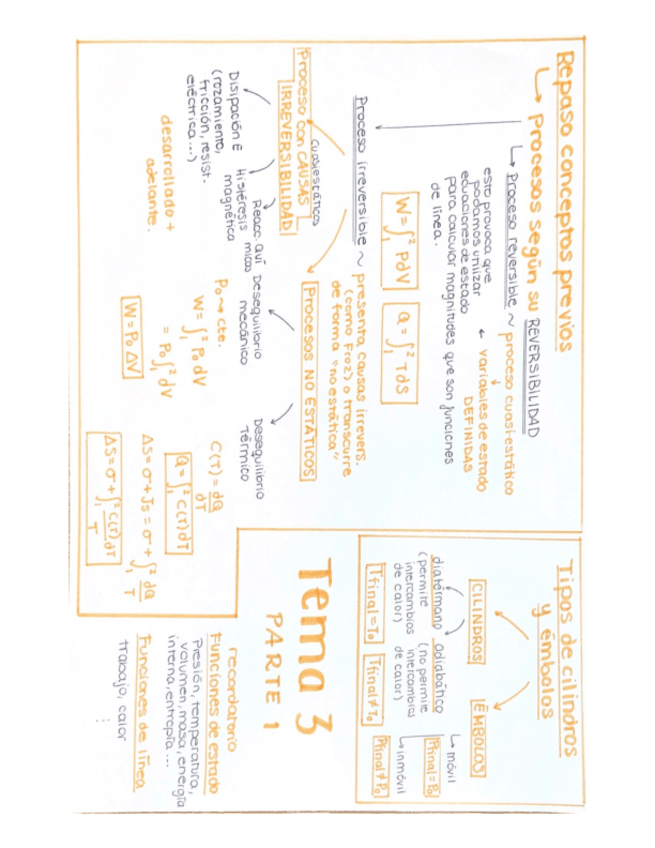 Repaso conceptos previos
↳ procesos según su REVERSIBILIDAD
↳ Proceso reversible ~ proceso cuasiestático
↓
este provoca que ← variables de estado
podamos utilizar DEFINIDAS
ecuaciones de estado
para calcular magnitudes que son funciones
de línea.
W=∫₁² PdV
Q=∫₁² TdS
Proceso irreversible ~ presenta causas irrevers.
(como Froz) o transcurre
de forma "no estática"
cuasiestáticos
Proceso con CAUSAS
IRREVERSIBILIDAD
PROCESOS NO ESTÁTICOS
Disipación E
(rozamiento,
fricción, resist.
eléctrica...)
Histéresis
magnética
Reacc. quí
micas
desarrollado +
adelante.
Desequilibrio
mecánico
P₀ → cte.
W = ∫₁² P₀ dV
= P₀ ∫₁² dV
W = P₀ ΔV
Desequilibrio
térmico
C(T) = dQ/dT
Q = ∫₁² C(T)dT
ΔS = σ + Js = σ + ∫₁² dQ/T
ΔS = σ + ∫₁² C(T)dT/T
Tipos de cilindros
y émbolos
CILINDROS
diatérmano
(permite
intercambios
de calor)
Tfinal = T₀
adiabático
(no permite
intercambios
de calor)
Tfinal ≠ T₀
ÉMBOLOS
↳ móvil
Pfinal = P₀
↳ inmóvil
Pfinal ≠ P₀
Tema 3
PARTE 1
recordatorio
Funciones de estado
Presión, temperatura,
volumen, masa, energía
interna, entropía...
Funciones de línea
trabajo, calor
⋮